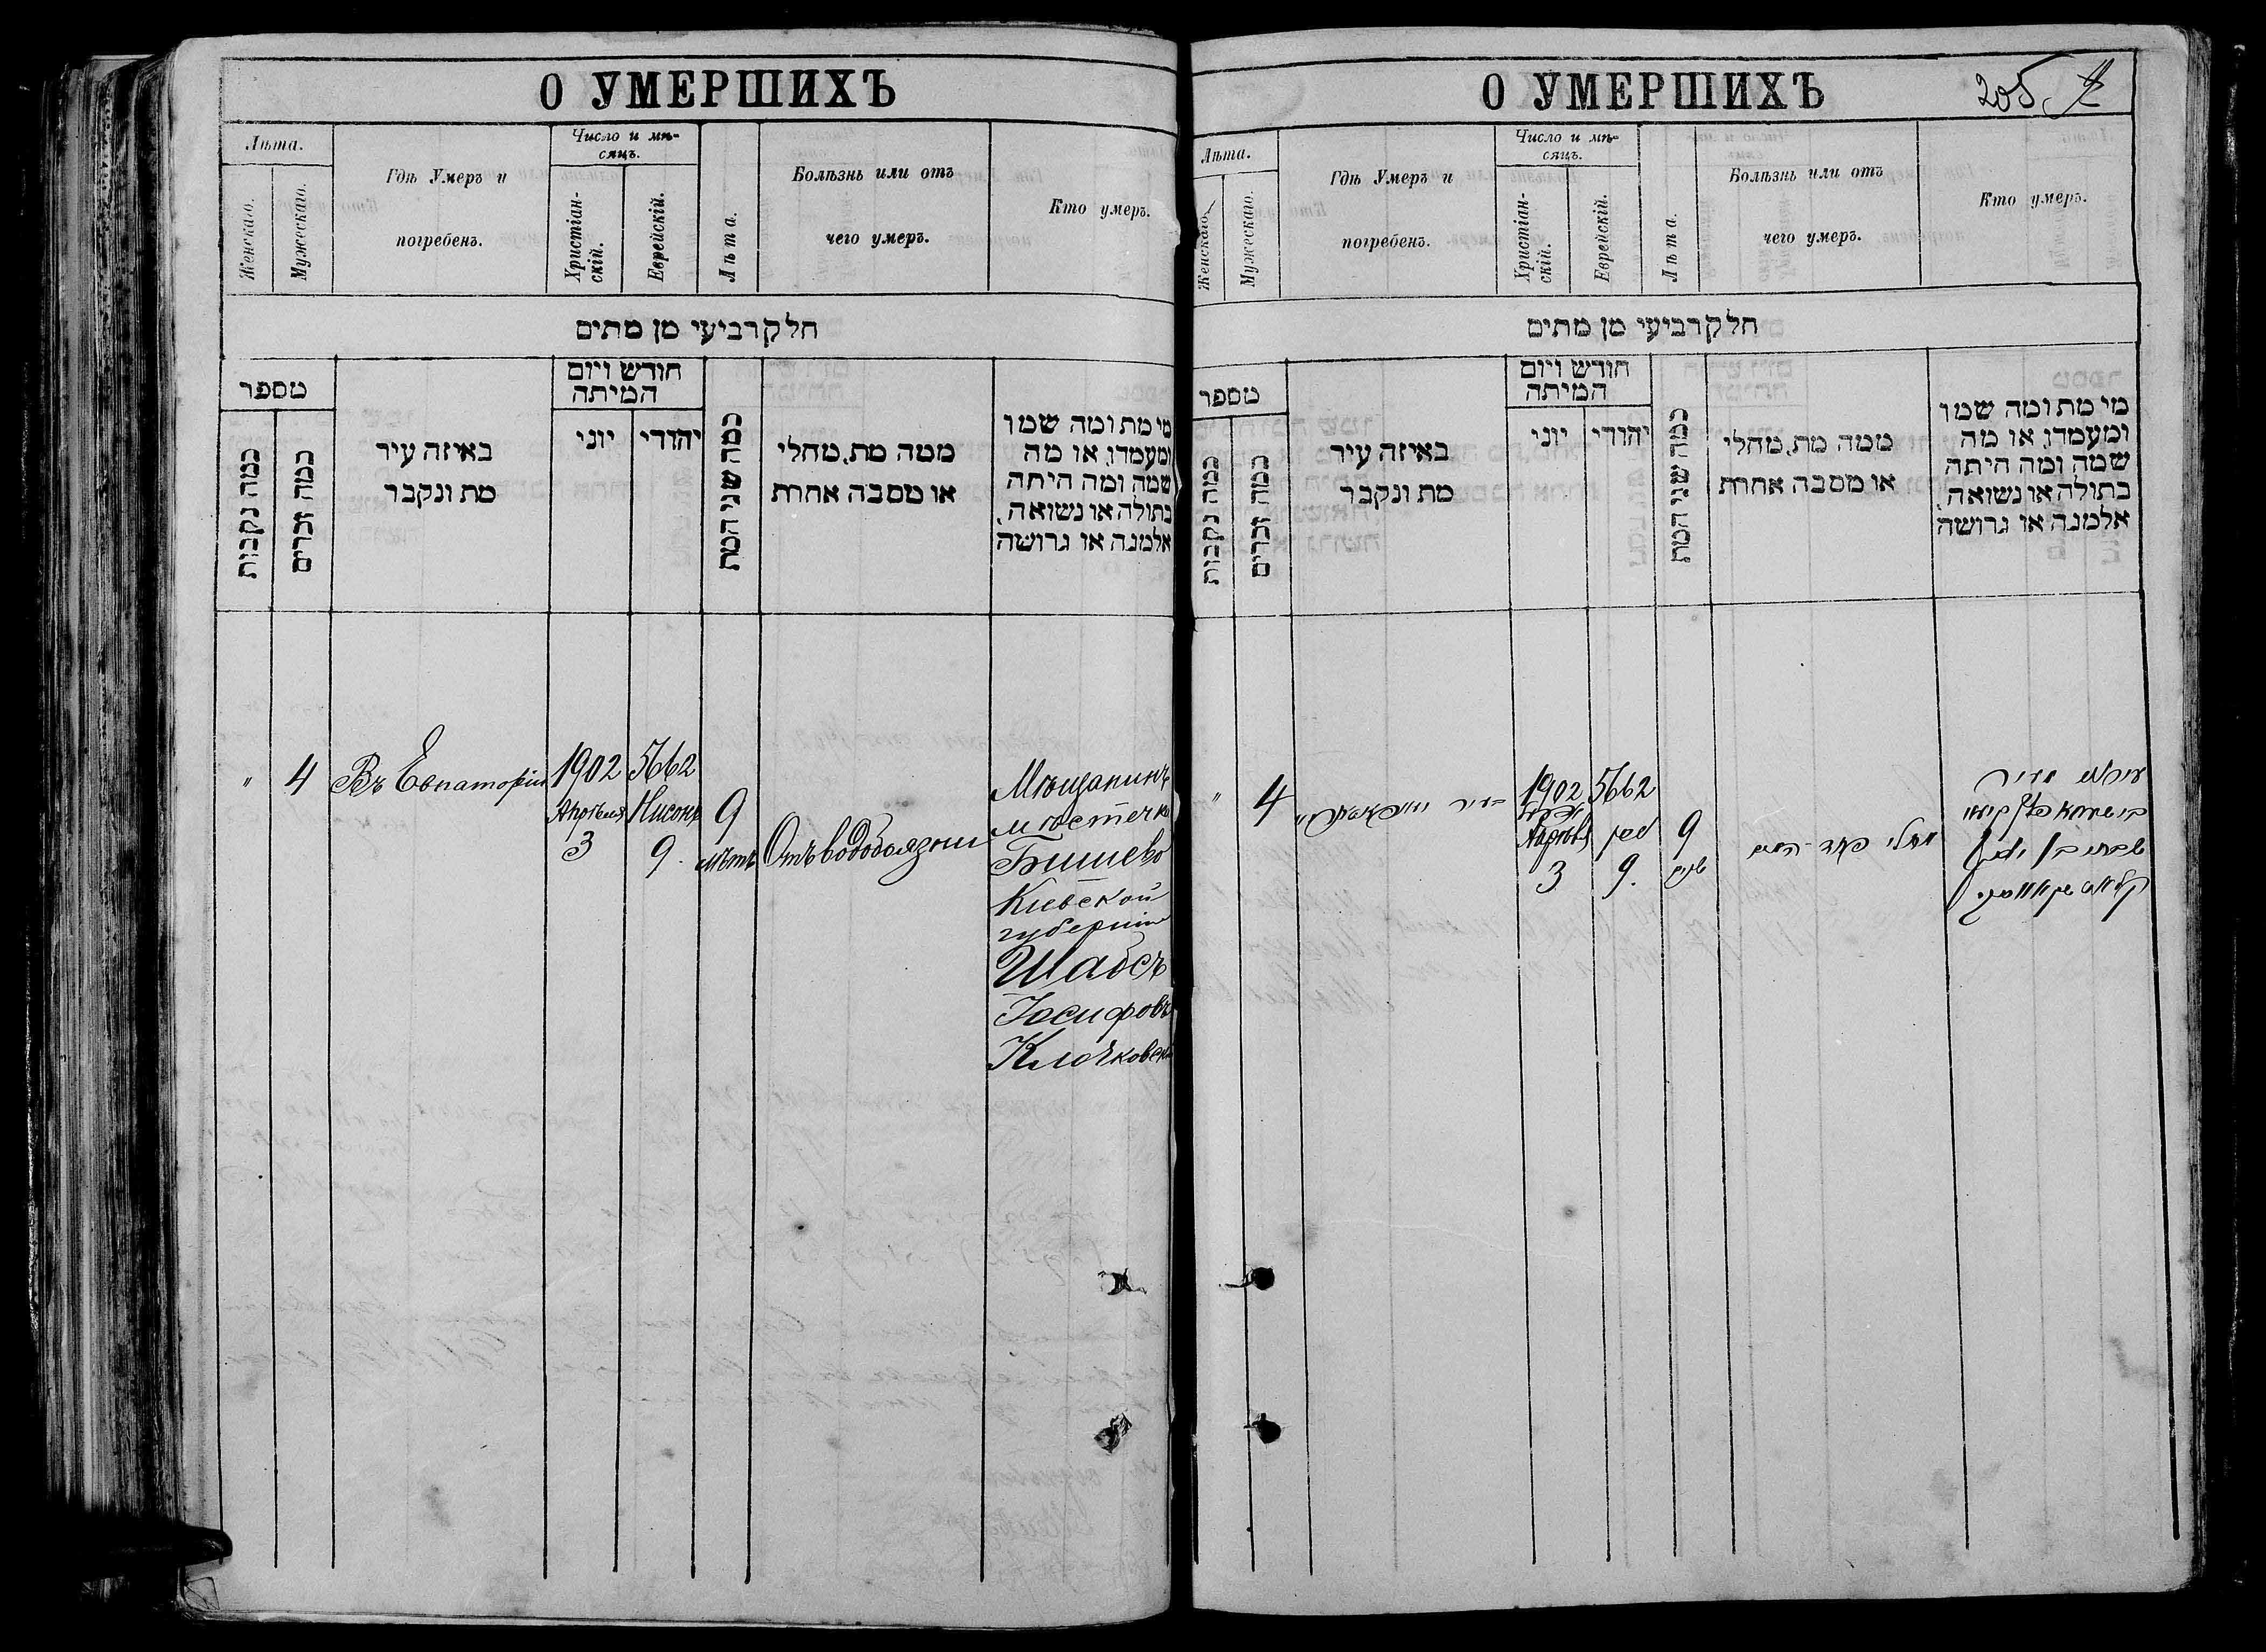 О УМЕРШИХЪ
Лѣта.
Женскаго.
Мужескаго.
Гдѣ Умеръ и
погребенъ.
Число и мѣ-
сяцъ.
Христіан-
скій.
Еврейскій.
Лѣта.
Болѣзнь или отъ
чего умеръ.
Кто умеръ.
חלק רביעי מן מתים
מספר
כמה נקבות
כמה זכרים
באיזה עיר
מת ונקבר
חודש ויום
המיתה
יוני
יהודי
כמה שני המת
ממה מת, מחלי
או מסבה אחרת
מי מת ומה שמו
ומעמדו, או מה
שמה ומה היתה
בתולה או נשואה,
אלמנה או גרושה
" 4 Въ Евпаторіи
1902
Апрѣля
3
5662
Нисонъ
9.
9
лѣтъ
Отъ водобоязни
Мѣщанинъ
мѣстечка
Бышево
Кіевской
губерніи
Шабсъ
Іосифовъ
Клочковскій
О УМЕРШИХЪ
205.
Лѣта.
Женскаго.
Мужескаго.
Гдѣ Умеръ и
погребенъ.
Число и мѣ-
сяцъ.
Христіан-
скій.
Еврейскій.
Лѣта.
Болѣзнь или отъ
чего умеръ.
Кто умеръ.
חלק רביעי מן מתים
מספר
כמה נקבות
כמה זכרים
באיזה עיר
מת ונקבר
חודש ויום
המיתה
יוני
יהודי
כמה שני המת
ממה מת, מחלי
או מסבה אחרת
מי מת ומה שמו
ומעמדו, או מה
שמה ומה היתה
בתולה או נשואה,
אלמנה או גרושה
" 4
1902
Апрѣля
3
5662
ניסן
9.
9
שנים